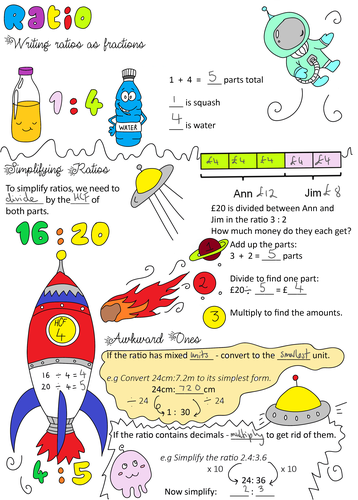 Ratio
Writing ratios as fractions
1:4
WATER
1 + 4 = 5 parts total
1 is squash
4 is water
Simplifying Ratios
To simplify ratios, we need to
divide by the HCF of
both parts.
16:20
HCF
4
16 ÷ 4 = 4
20 ÷ 4 = 5
4:5
£4 £4 £4 £4 £4
Ann £12 Jim £8
£20 is divided between Ann and
Jim in the ratio 3 : 2
How much money do they each get?
1 Add up the parts:
3 + 2 = 5 parts
2 Divide to find one part:
£20÷ 5 = £ 4
3 Multiply to find the amounts.
Awkward Ones
If the ratio has mixed units - convert to the smallest unit.
e.g Convert 24cm:7.2m to its simplest form.
24cm: 720 cm
÷ 24 ÷ 24
1 : 30
If the ratio contains decimals - multiply to get rid of them.
e.g Simplify the ratio 2.4:3.6
x 10 x 10
24: 36
Now simplify: 2 : 3